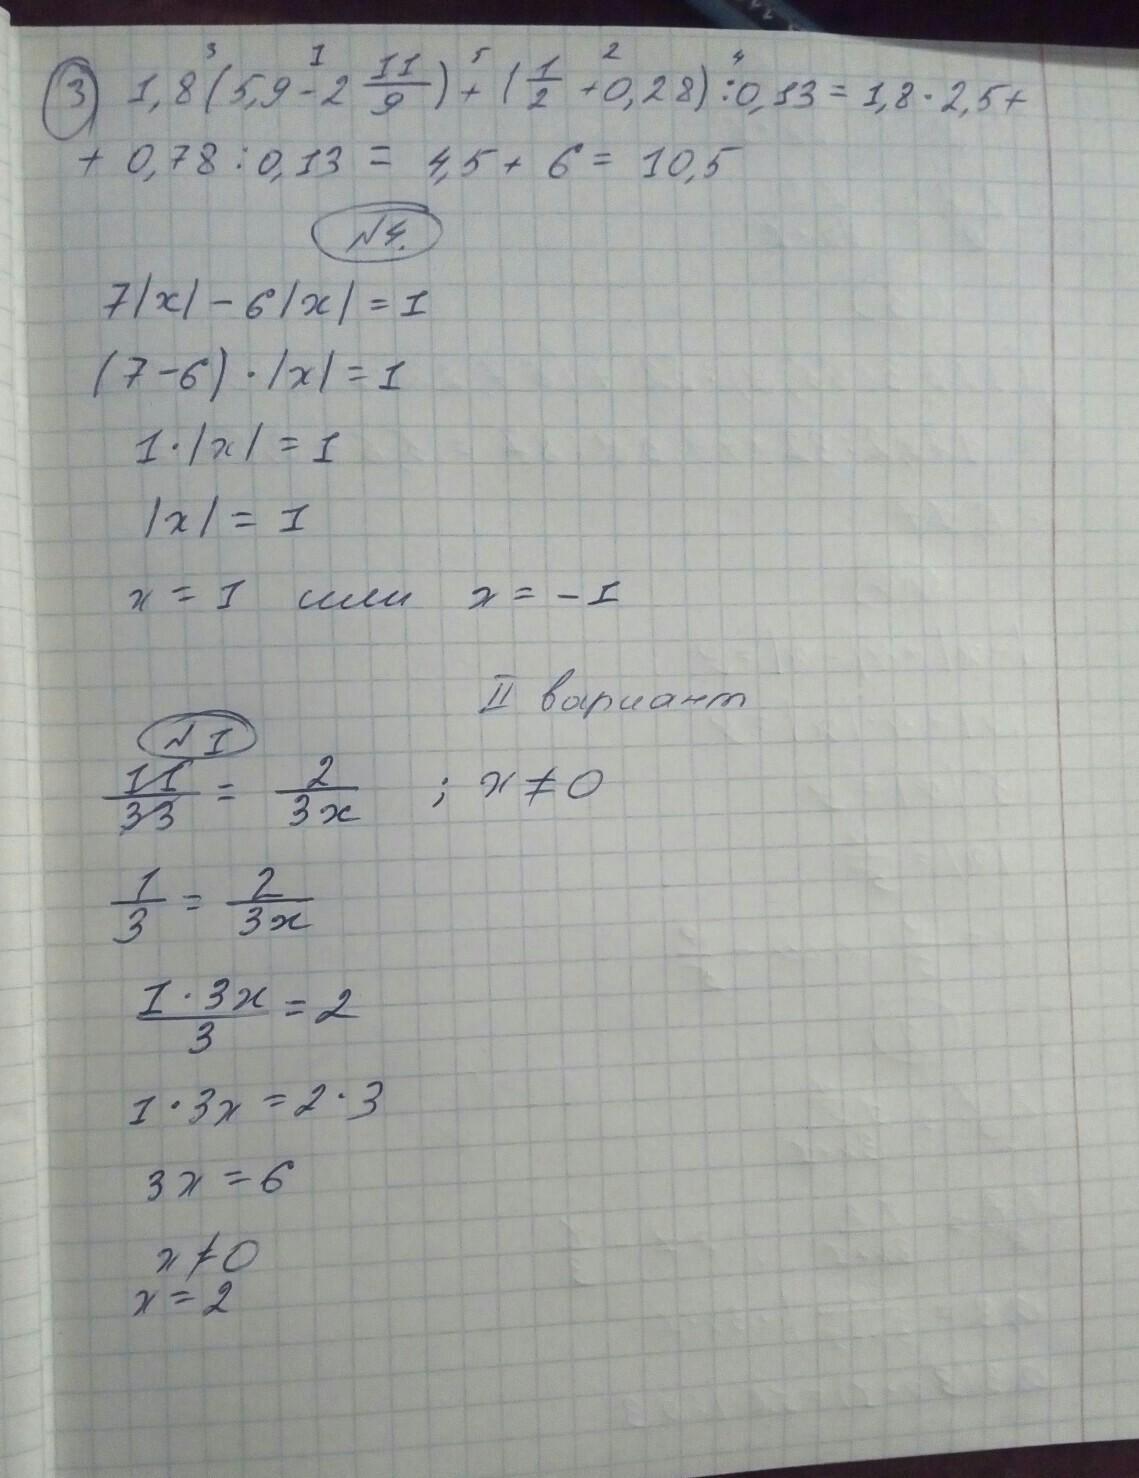 3 1,8(5,9-2 11/9)+(1/2+0,28):0,13=1,8·2,5+
3 1 5 2 4
+0,78:0,13=4,5+6=10,5
№4.
7|x|-6|x|=1
(7-6)·|x|=1
1·|x|=1
|x|=1
x=1 или x=-1
II вариант
№1
11/33=2/3x ; x≠0
1/3=2/3x
1·3x/3=2
1·3x=2·3
3x=6
x≠0
x=2